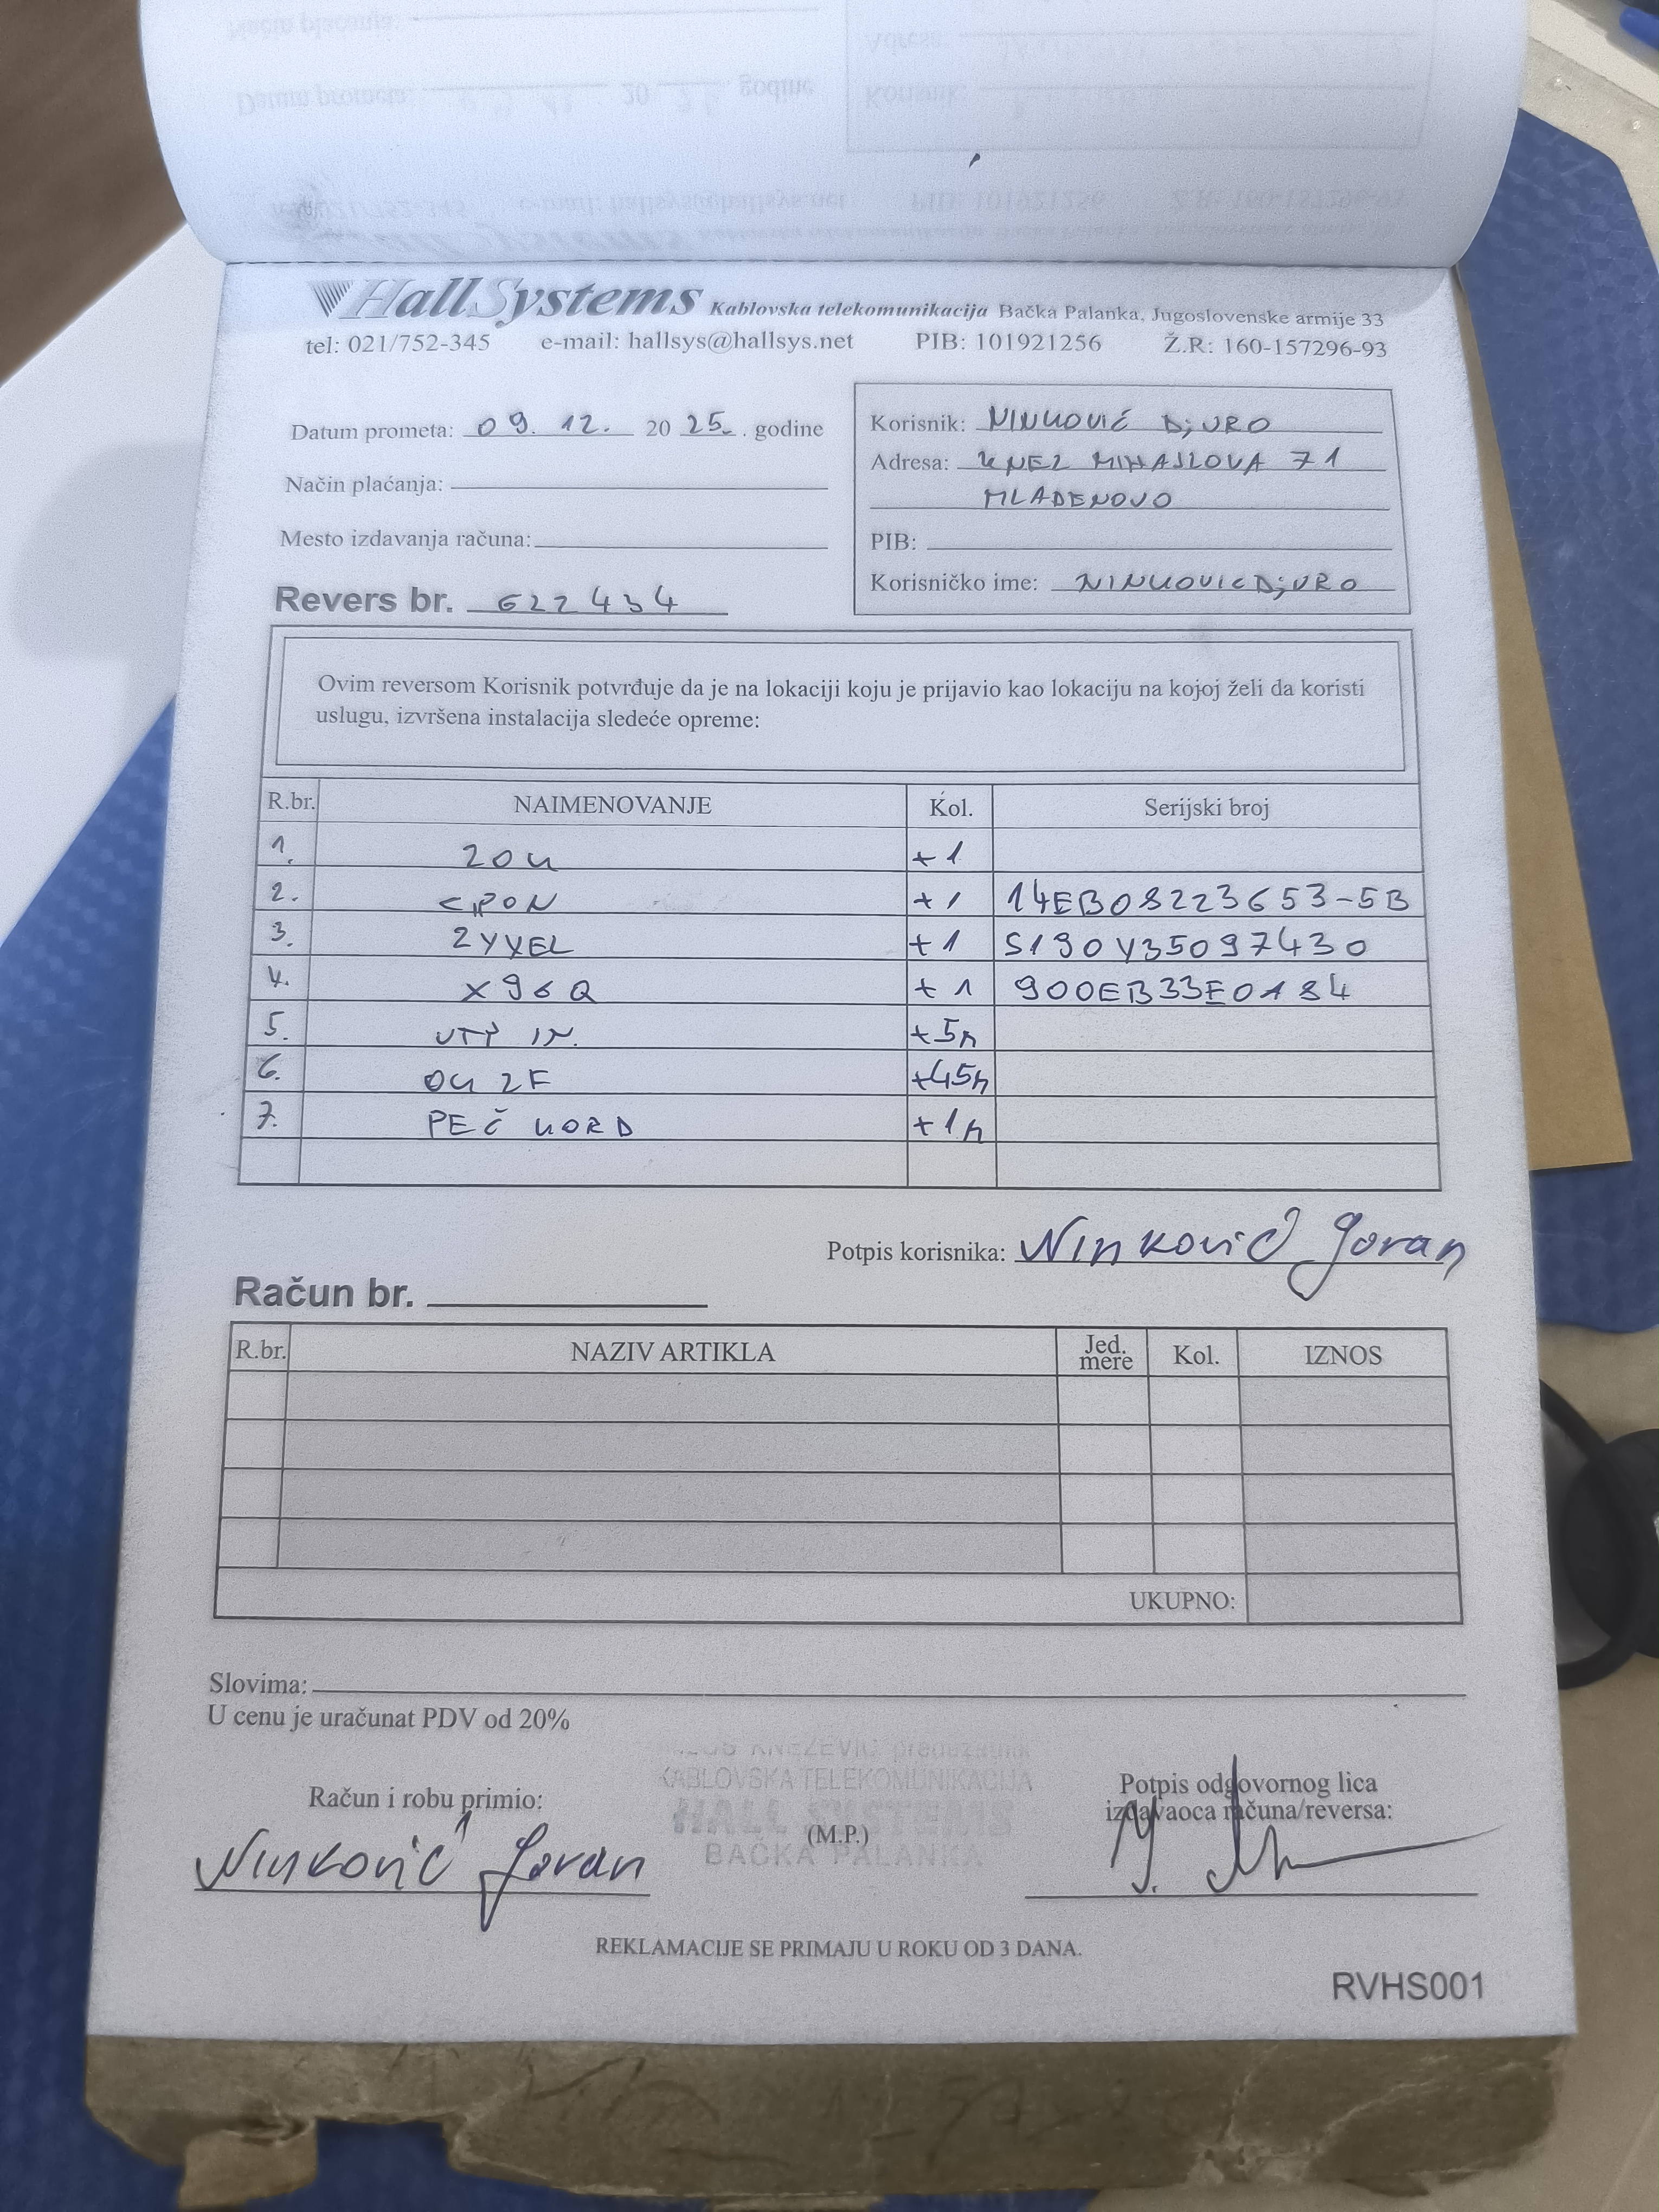 HallSystems Kablovska telekomunikacija Bačka Palanka, Jugoslovenske armije 33
tel: 021/752-345 e-mail: hallsys@hallsys.net PIB: 101921256 Ž.R: 160-157296-93
Datum prometa: 09. 12. 20 25. . godine
Način plaćanja:
Mesto izdavanja računa:
Revers br. 622434
Korisnik: NINKOVIĆ DjURO
Adresa: KNEZ MIHAJLOVA 71
MLADENOVO
PIB:
Korisničko ime: NINKOVICDjURO
Ovim reversom Korisnik potvrđuje da je na lokaciji koju je prijavio kao lokaciju na kojoj želi da koristi
uslugu, izvršena instalacija sledeće opreme:
R.br. NAIMENOVANJE Kol. Serijski broj
1. ZOK +1
2. GPON +1 14EB08223653-5B
3. ZYXEL +1 S190Y35097430
4. X96Q +1 900EB33E0184
5. UTP IN. +5m
6. OK 2F +45m
7. PEČ KORD +1m
Potpis korisnika: Ninković Goran
Račun br.
R.br. NAZIV ARTIKLA Jed. mere Kol. IZNOS
UKUPNO:
Slovima:
U cenu je uračunat PDV od 20%
KNEZEVIC preduzetnik
KABLOVSKA TELEKOMUNIKACIJA
HALL SYSTEMS
BAČKA PALANKA
Račun i robu primio:
Ninković Goran
(M.P.)
Potpis odgovornog lica
izdavaoca računa/reversa:
REKLAMACIJE SE PRIMAJU U ROKU OD 3 DANA.
RVHS001